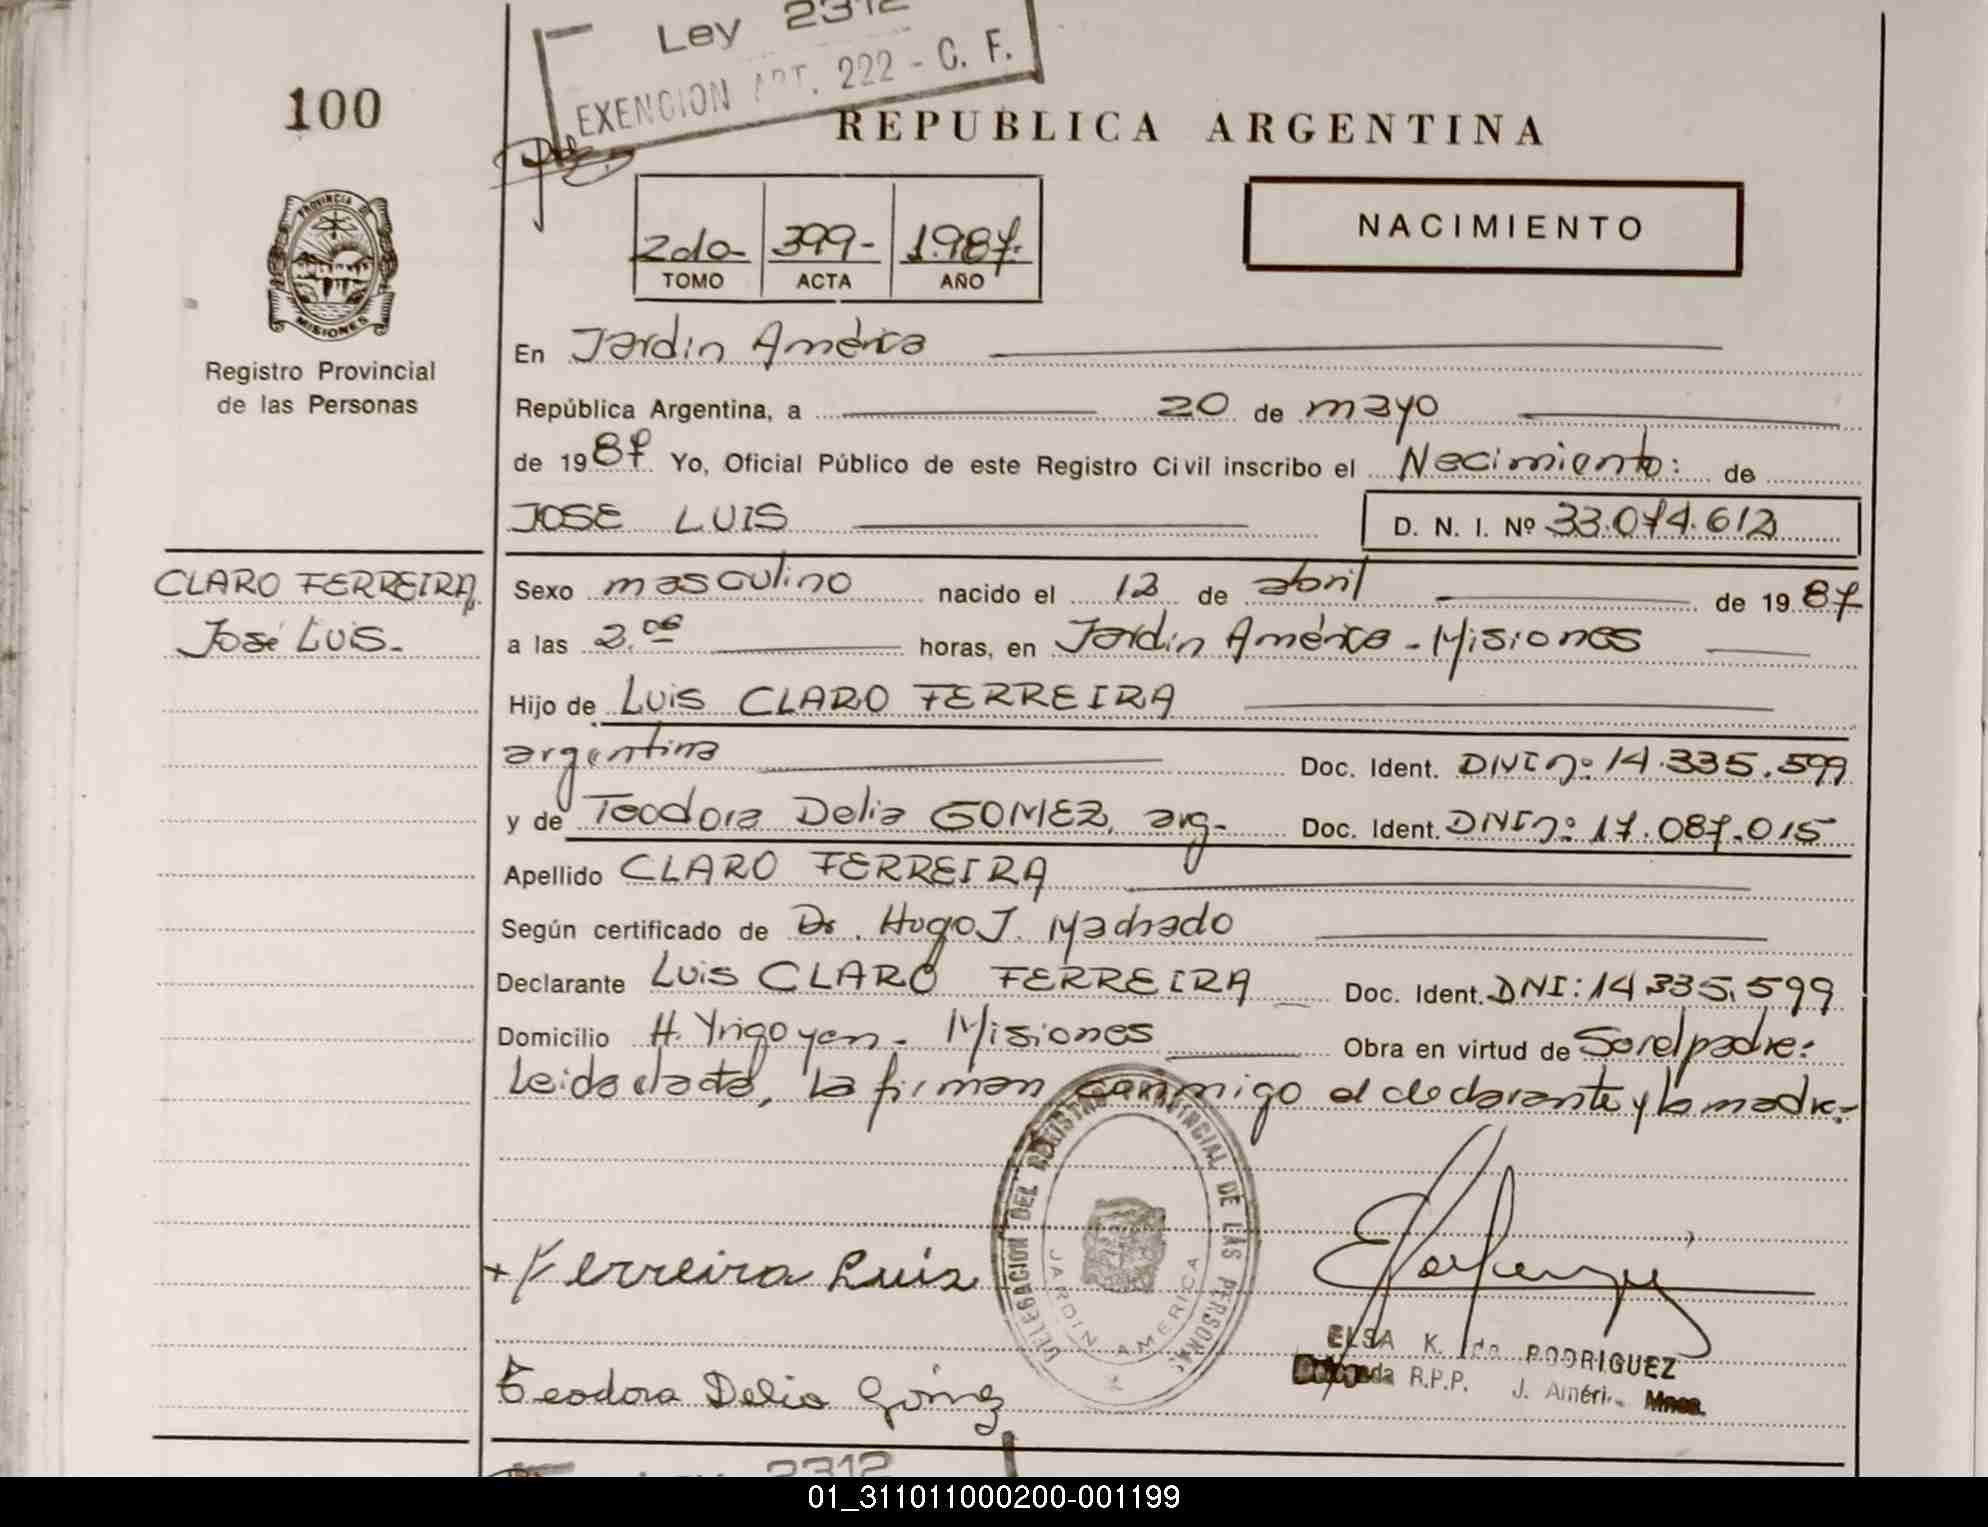 Ley 2312
EXENCION ART. 222 - C. F.
100
REPUBLICA ARGENTINA
PROVINCIA DE
MISIONES
Registro Provincial
de las Personas
2do- 399- 1.987.
TOMO ACTA AÑO
NACIMIENTO
En Jardín América
República Argentina, a 20 de mayo
de 1987 Yo, Oficial Público de este Registro Civil inscribo el Nacimiento: de
JOSE LUIS D. N. I. Nº 33.074.612
CLARO FERREIRA,
José Luis.-
Sexo masculino nacido el 12 de abril de 1987
a las 2.00 horas, en Jardín América - Misiones
Hijo de Luis CLARO FERREIRA
argentina Doc. Ident. DNI nº 14.335.599
y de Teodora Delia GOMEZ, arg- Doc. Ident. DNI nº 17.087.015
Apellido CLARO FERREIRA
Según certificado de Dr. Hugo J. Machado
Declarante Luis CLARO FERREIRA Doc. Ident. DNI: 14.335.599
Domicilio H. Yrigoyen - Misiones Obra en virtud de Ser el padre:
Leida el acta, la firman conmigo el declarante y la madre.-
DELEGACION DEL REGISTRO PROVINCIAL DE LAS PERSONAS
JARDIN AMERICA
+ Ferreira Luis
ELSA K. de RODRIGUEZ
Delegada R.P.P. J. América Mnes.
Teodora Delia Gómez
Ley 2312
01_311011000200-001199